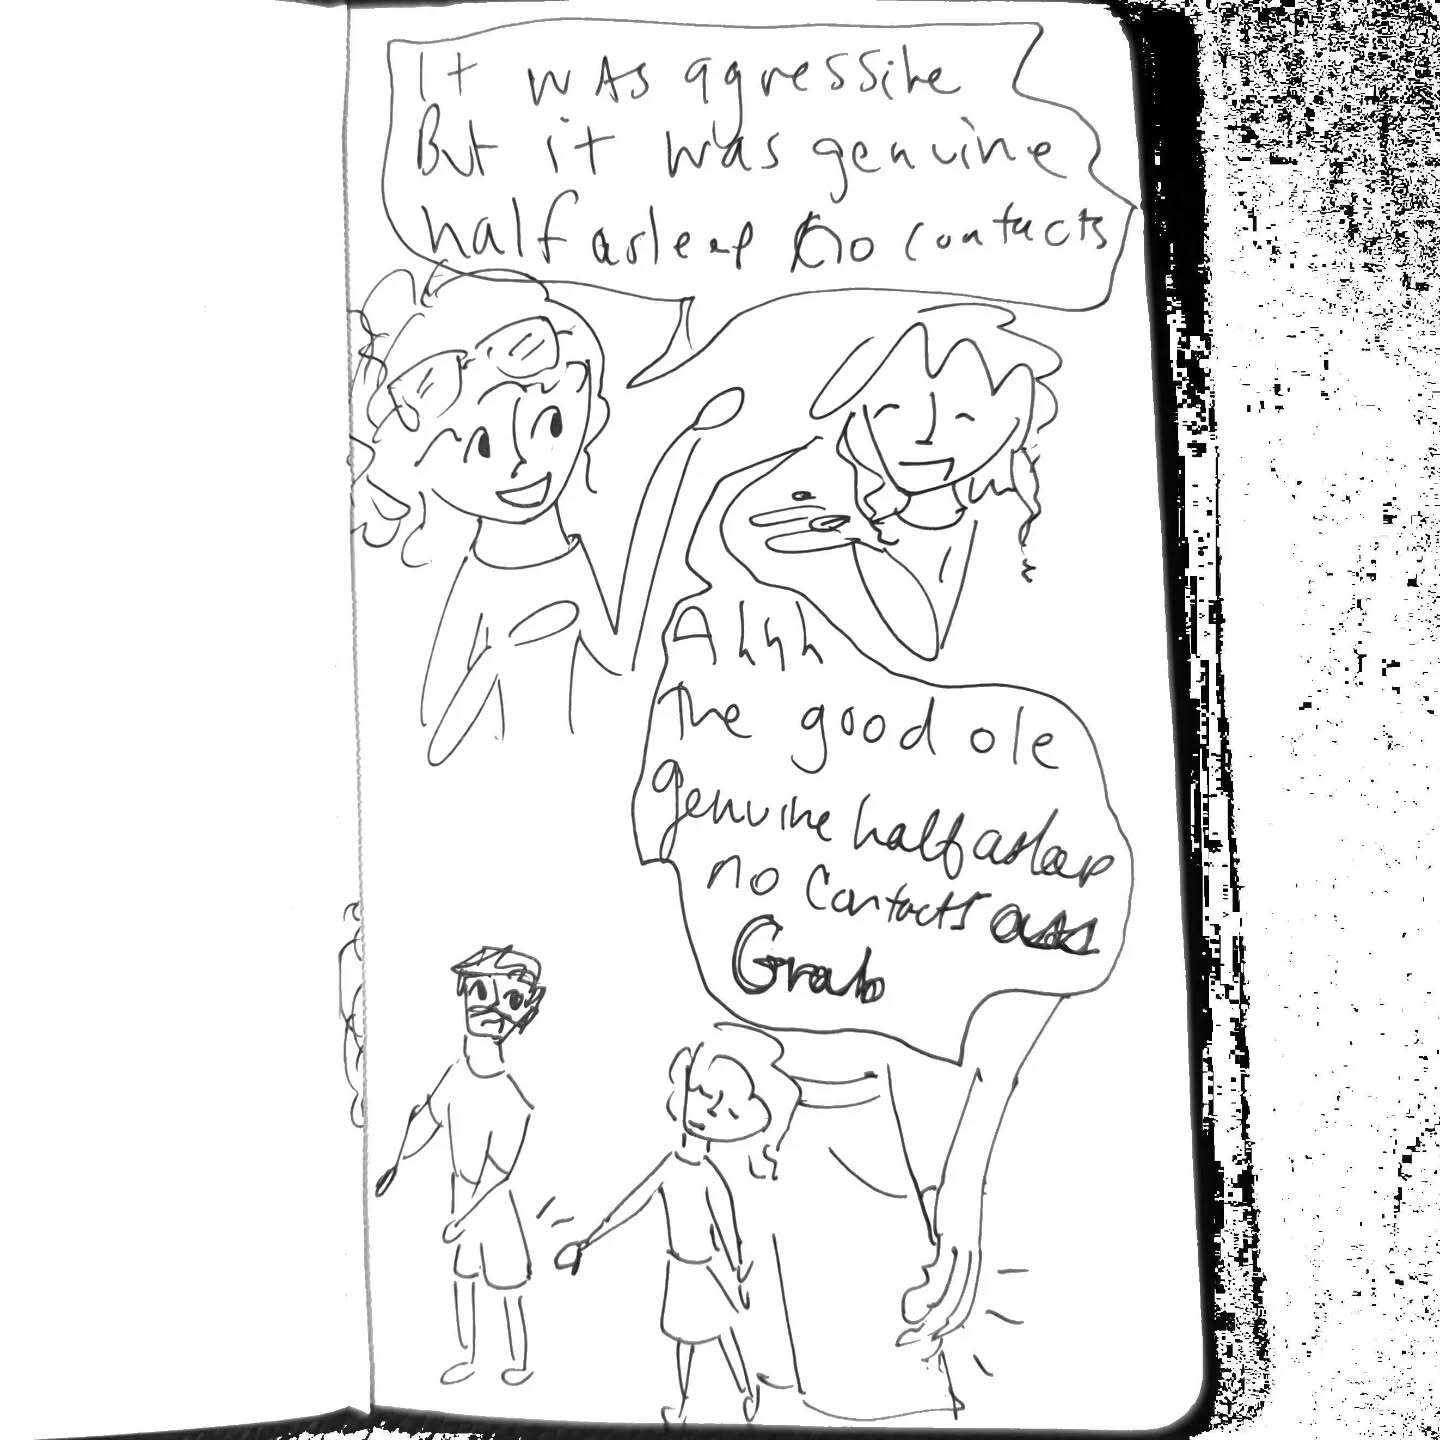 It was agressive
But it was genuine
half asleep no contacts
Ahhh
the good ole
genuine half asleep
no contacts ass
Grab